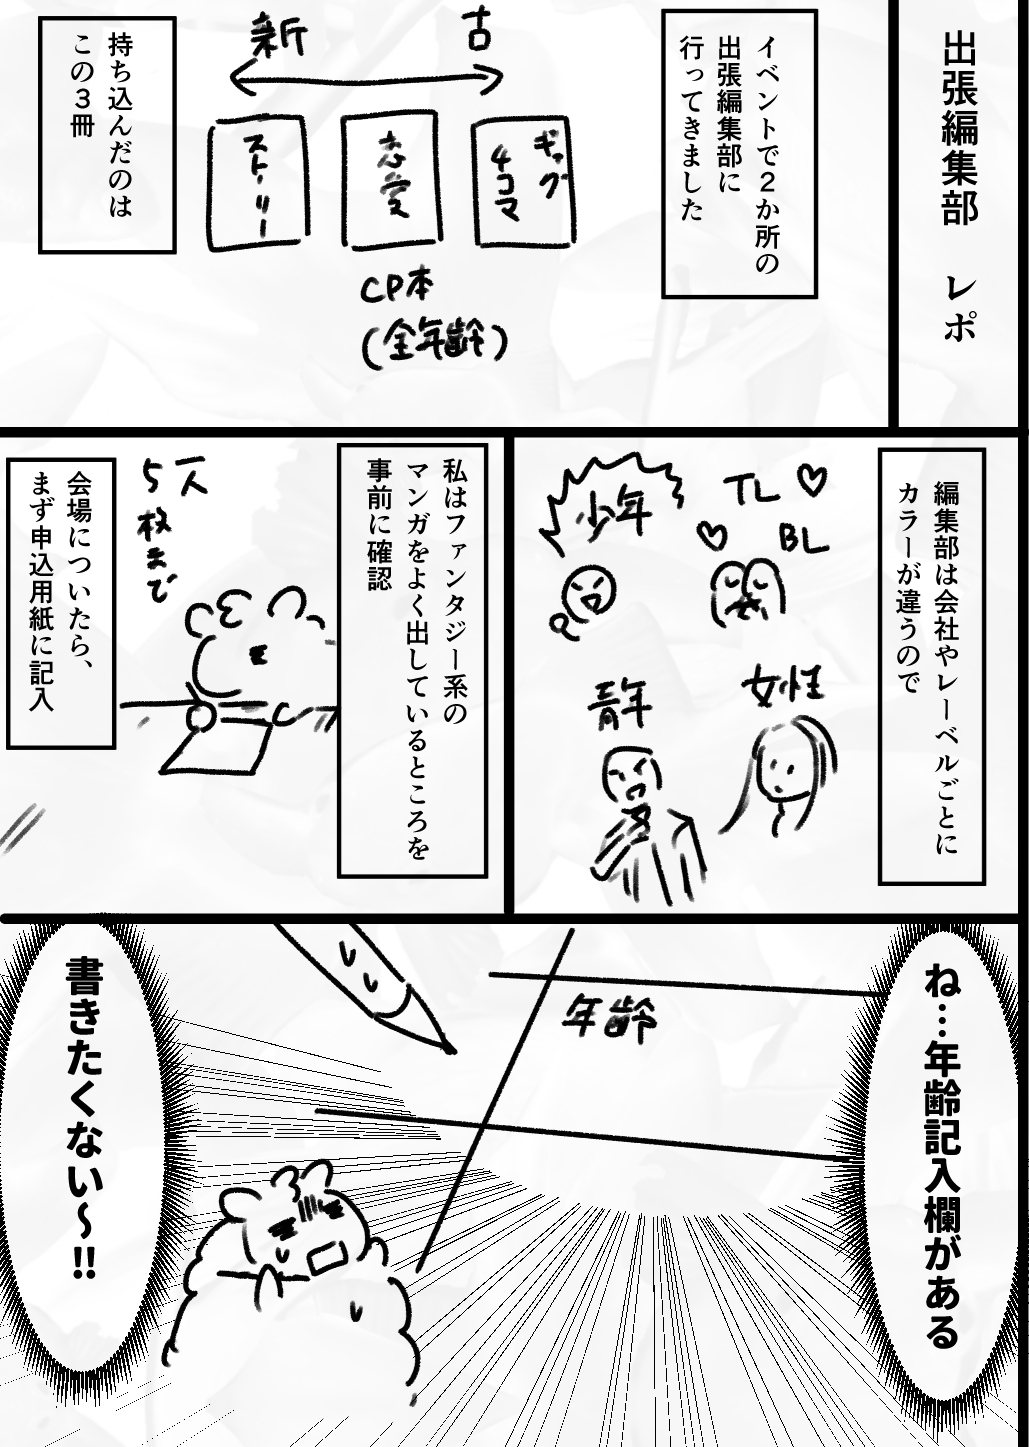 出張編集部 レポ
イベントで2か所の
出張編集部に
行ってきました
古
新
ギャグ
4コマ
恋愛
ストーリー
CP本
(全年齢)
持ち込んだのは
この3冊
編集部は会社やレーベルごとに
カラーが違うので
TL
BL
少年
女性
青年
私はファンタジー系の
マンガをよく出しているところを
事前に確認
一人
5枚まで
会場についたら、
まず申込用紙に記入
ね…年齢記入欄がある
年齢
書きたくない~!!